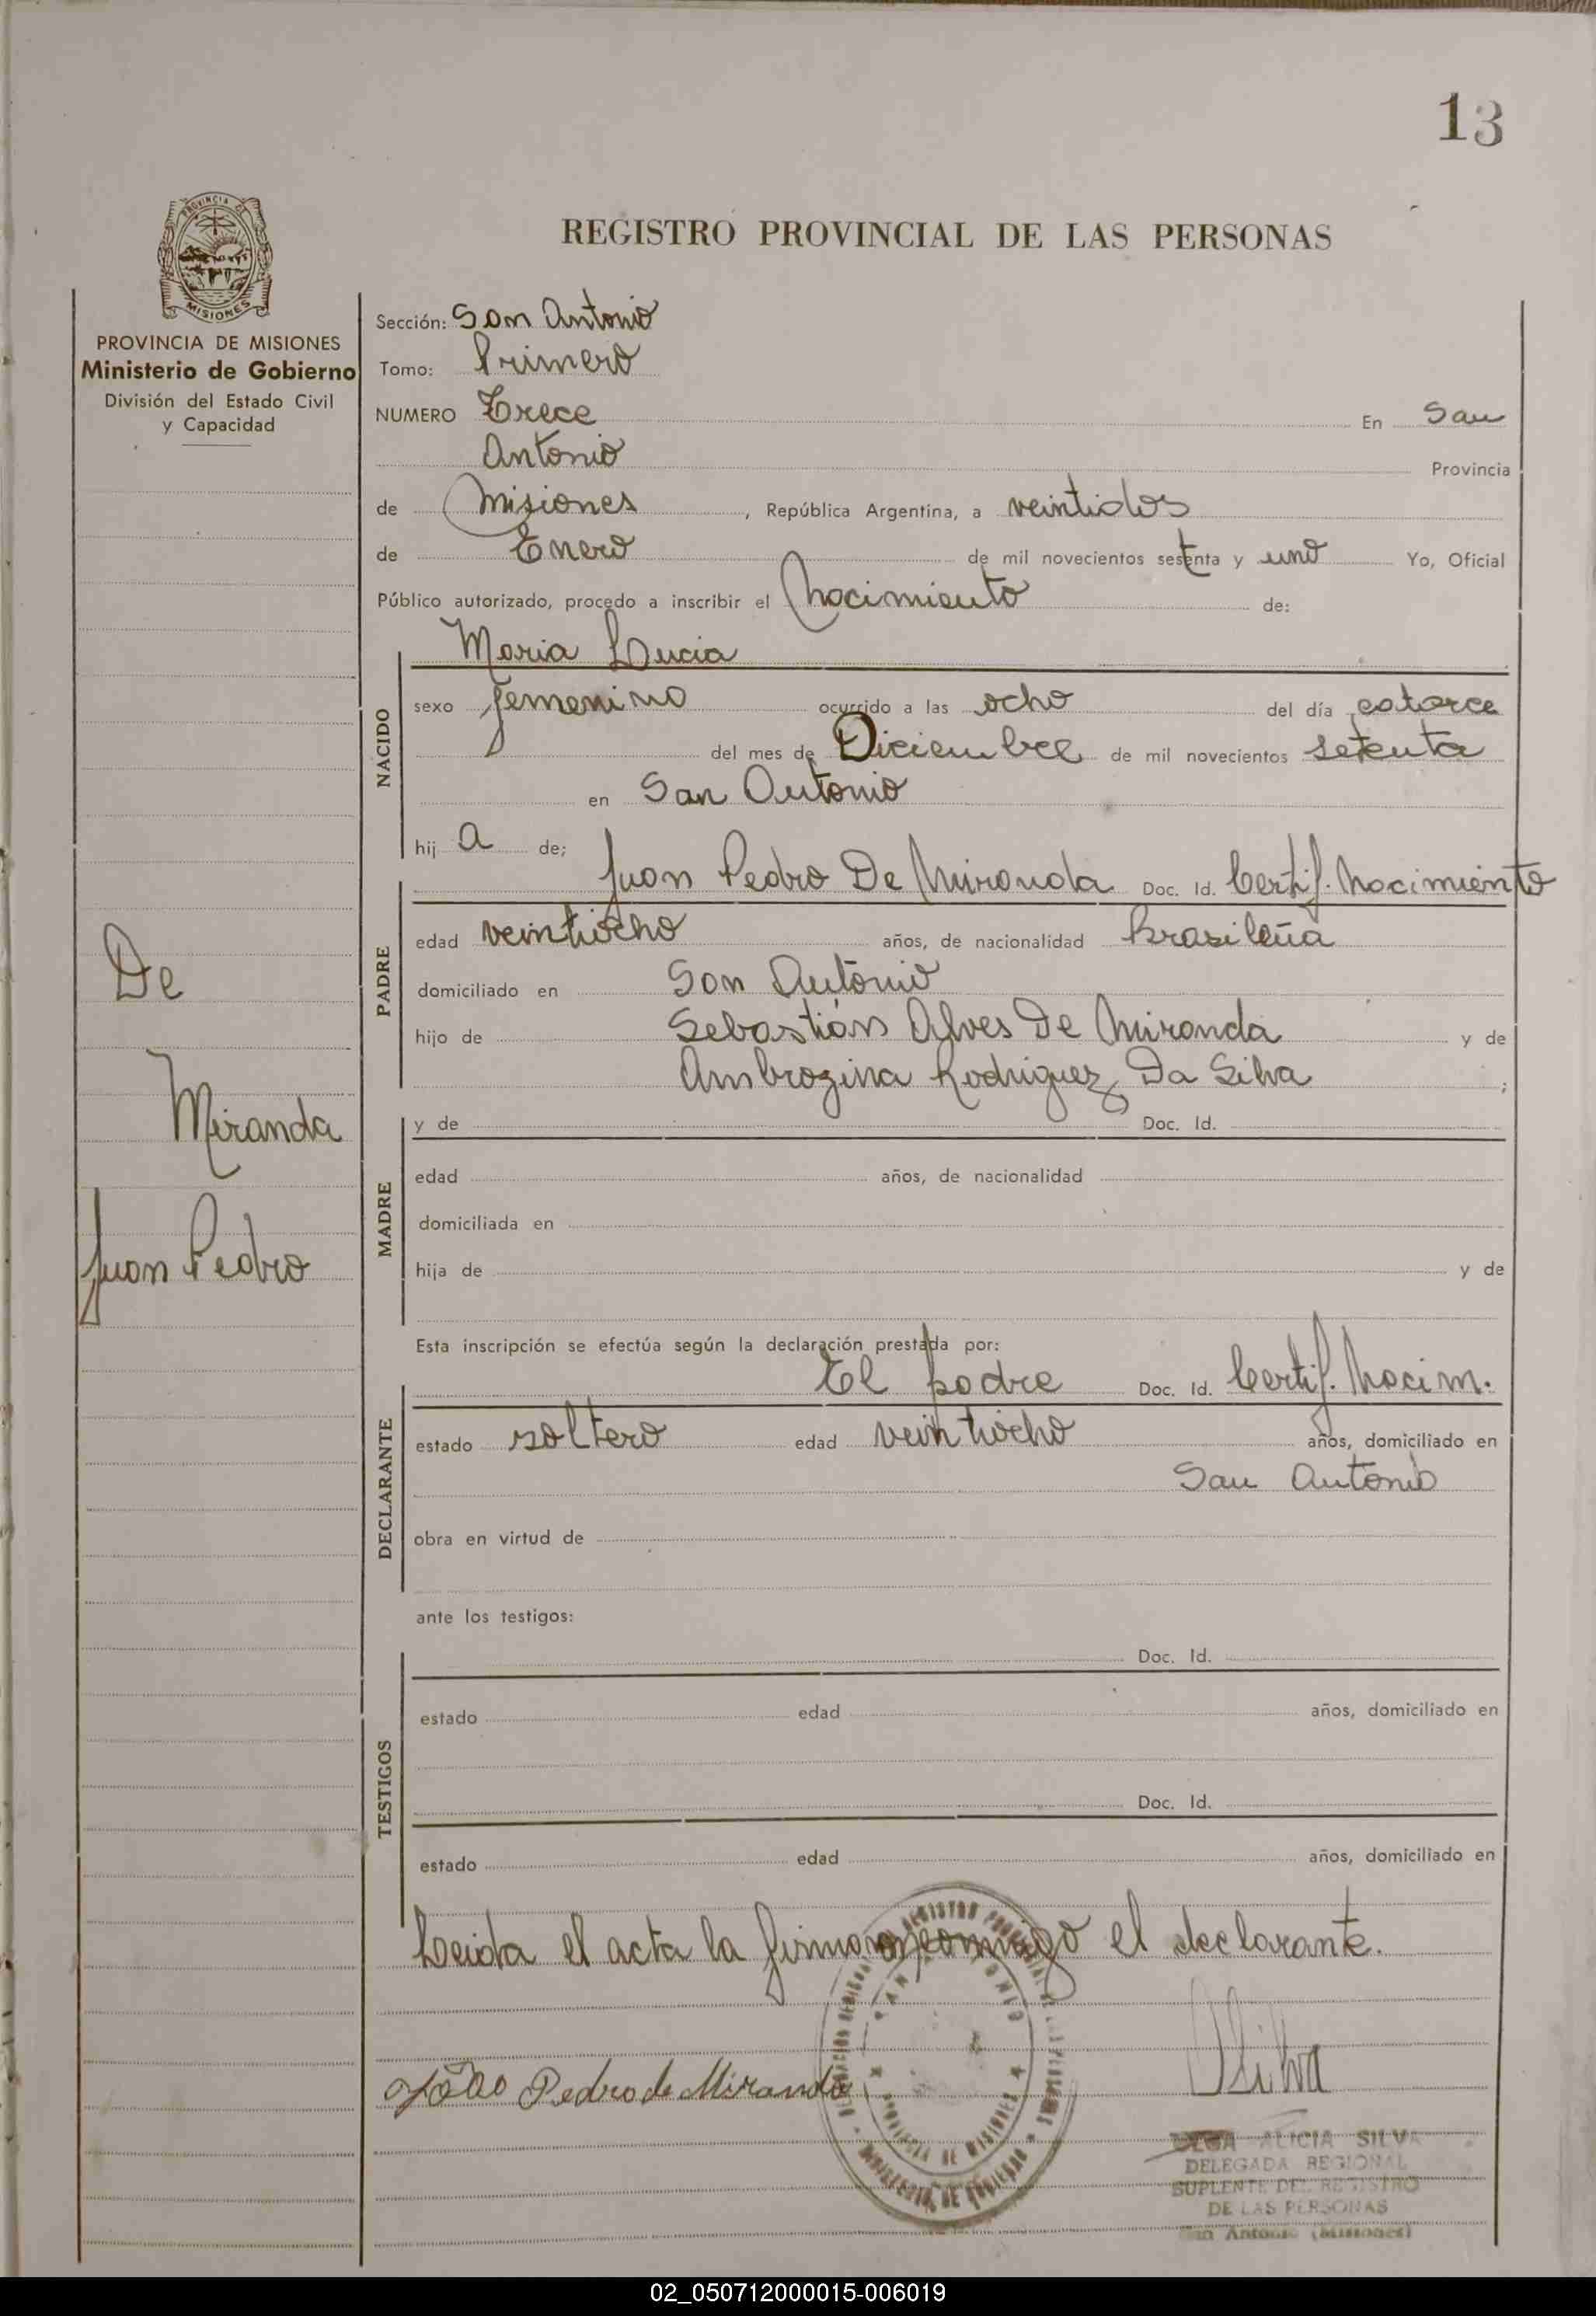 13
PROVINCIA DE
MISIONES
REGISTRO PROVINCIAL DE LAS PERSONAS
PROVINCIA DE MISIONES
Ministerio de Gobierno
División del Estado Civil
y Capacidad
Sección: San Antonio
Tomo: Primero
NUMERO Trece En San
Antonio Provincia
de Misiones, República Argentina, a veintidos
de Enero de mil novecientos setenta y uno Yo, Oficial
Público autorizado, procedo a inscribir el Nacimiento de:
Maria Lucia
NACIDO
sexo femenino ocurrido a las ocho del día catorce
del mes de Diciembre de mil novecientos setenta
en San Antonio
hij a de;
Juan Pedro De Miranda Doc. Id. Certif. Nacimiento
PADRE
edad veintiocho años, de nacionalidad Brasileña
domiciliado en San Antonio
hijo de Sebastián Alves De Miranda y de
Ambrozina Rodriguez Da Silva ;
De
Miranda
Juan Pedro
y de Doc. Id.
MADRE
edad años, de nacionalidad
domiciliada en
hija de y de
Esta inscripción se efectúa según la declaración prestada por:
El padre Doc. Id. Certif. Nacim.
DECLARANTE
estado soltero edad veintiocho años, domiciliado en
San Antonio
obra en virtud de
ante los testigos:
Doc. Id.
TESTIGOS
estado edad años, domiciliado en
Doc. Id.
estado edad años, domiciliado en
Leida el acta la firman conmigo el declarante.
João Pedro de Miranda
Silva
PROVINCIA DE MISIONES
OLGA ALICIA SILVA
DELEGADA REGIONAL
SUPLENTE DEL REGISTRO
DE LAS PERSONAS
San Antonio (Misiones)
02_050712000015-006019